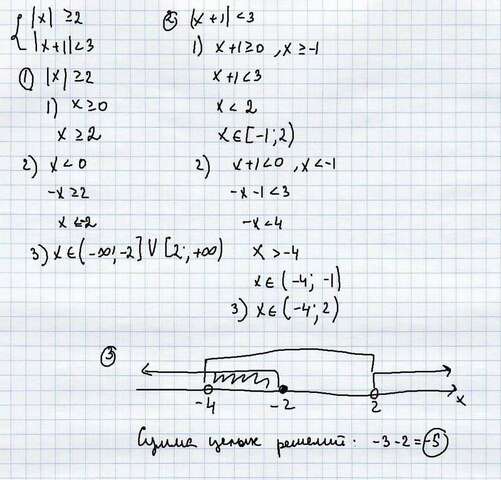 { |x| ≥ 2
|x+1| < 3
① |x| ≥ 2
1) x ≥ 0
x ≥ 2
2) x < 0
-x ≥ 2
x ≤ -2
3) x ∈ (-∞; -2] V [2; +∞)
② |x+1| < 3
1) x+1 ≥ 0, x ≥ -1
x+1 < 3
x < 2
x ∈ [-1; 2)
2) x+1 < 0, x < -1
-x-1 < 3
-x < 4
x > -4
x ∈ (-4; -1)
3) x ∈ (-4; 2)
③
-4 -2 2 x
Сумма целых решений: -3-2 = -5